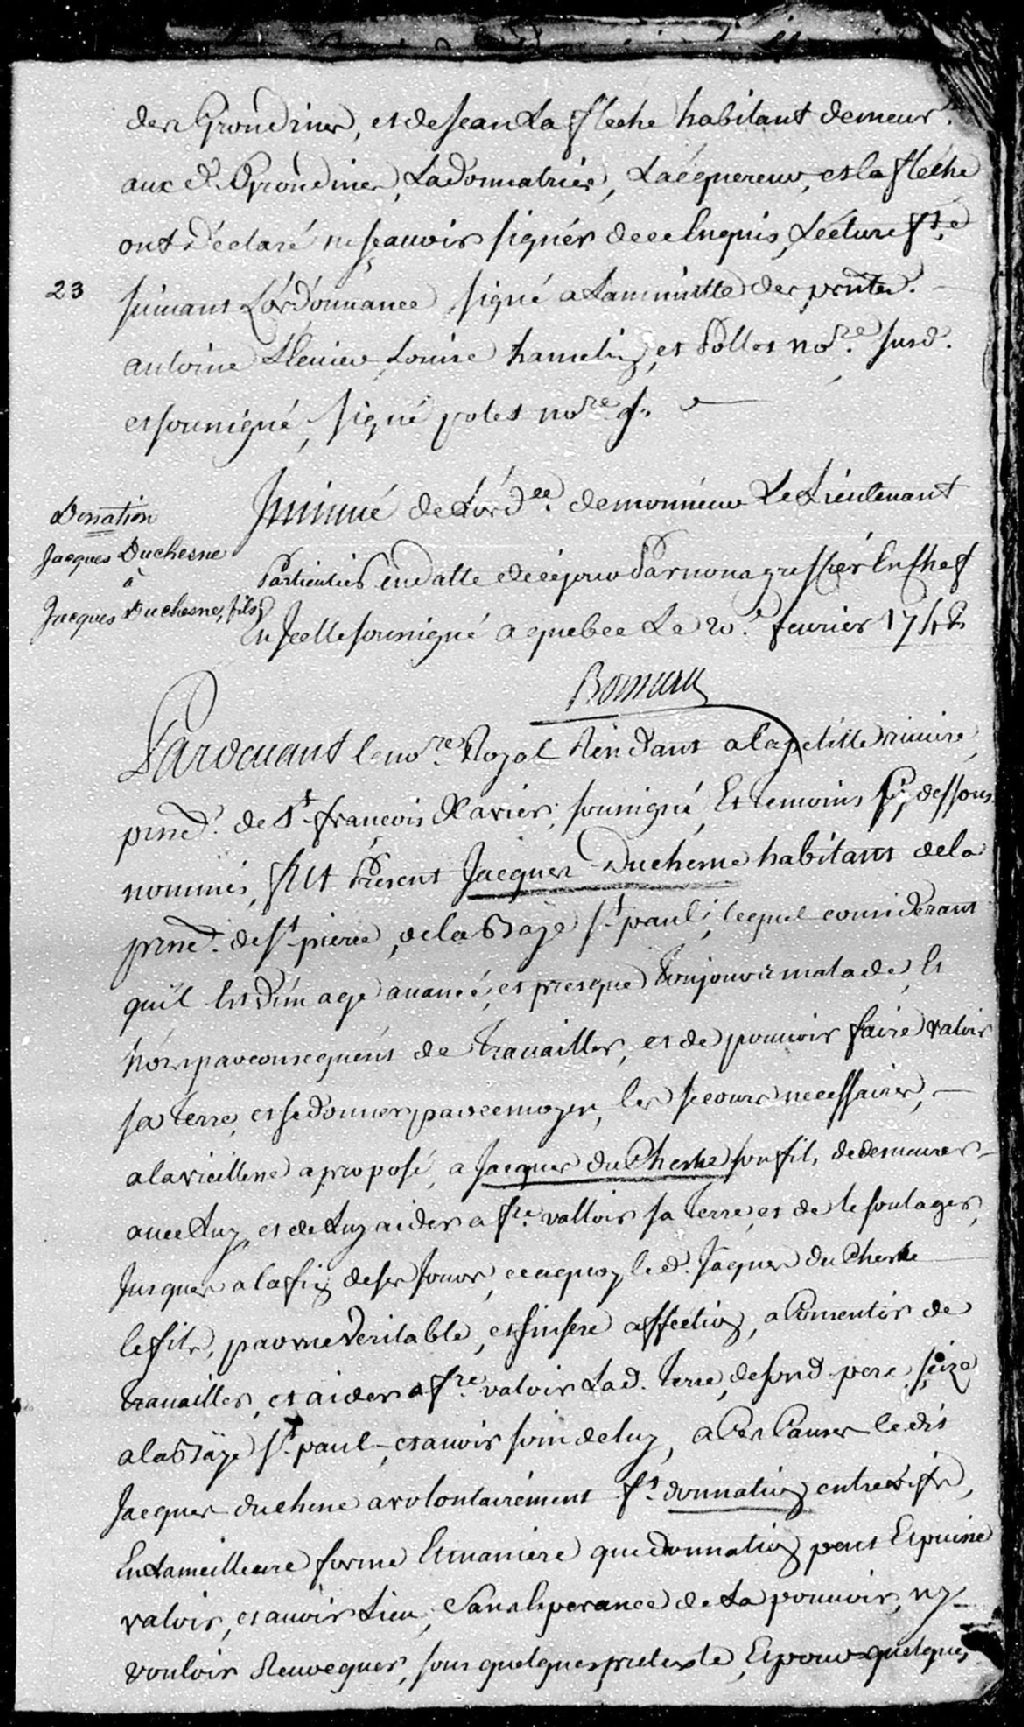 des Grondines, et de Jean La fleche habitant demeur.t
aux d. Grondines, La Donnatrice, L'acquereur, et la fléche
ont déclaré ne sçauoir signér de ce Enquis, Lécture f.té
23
suiuant L'ordonnance signé a La minutte des pntes.
antoine Louise hamelin, et Pollet no.re susd.
et sousigné, signé polet no.re
Donation
Jacques Duchesne
à
Jacques Duchesne, fils
Insinué de L'ord.ce de monsieur Le Lieutenant
Particulier en datte de ce jour Par nous greffiér En Chef
En Icelle sousigné a quebec Le 20.e feurier 1742
Boisseau
Pardeuant le no.re Royal Residant a la petitte riuiere
parroisse de S.t françois Xavier, sousigné, Et temoins cy dessous
nommés, fut Présent Jacques Duchesne habitant de la
de s.t pierre, de la Baÿe s.t paul, lequel considerant
qu'il Est d'un age auancé, et presque Toujours malade, Et
hors par consequent de trauailler, et de pouuoir faire valoir
sa terre, et se donner par ce moyen, les secours necessaires,
a la vieillesse a proposé, a Jacques du Chesne son fils, de demeurer
auec Luy, et de Luy aider a f.re valloir sa terre, et de le soulager,
Jusques a la fin de ses Jours, ce a quoy le d. Jaques du Chesne
le fils, par une Veritable, et sinsere affection, de
trauailler, et aider a f.re valoir Lad. terre, de sond. pere, seize
a la Baÿe s.t paul, et auoir soin de luy, a Ces Causes ledit
Jacques duchesne a volontairément f.t donnation entre vifs,
En La meilleure forme Et maniere que donnation peut Et puisse
valoir, et auoir Lieu, Sans Esperance de La pouuoir, ny
vouloir Reuoquer, sous quelques pretexte, Et pour quelque